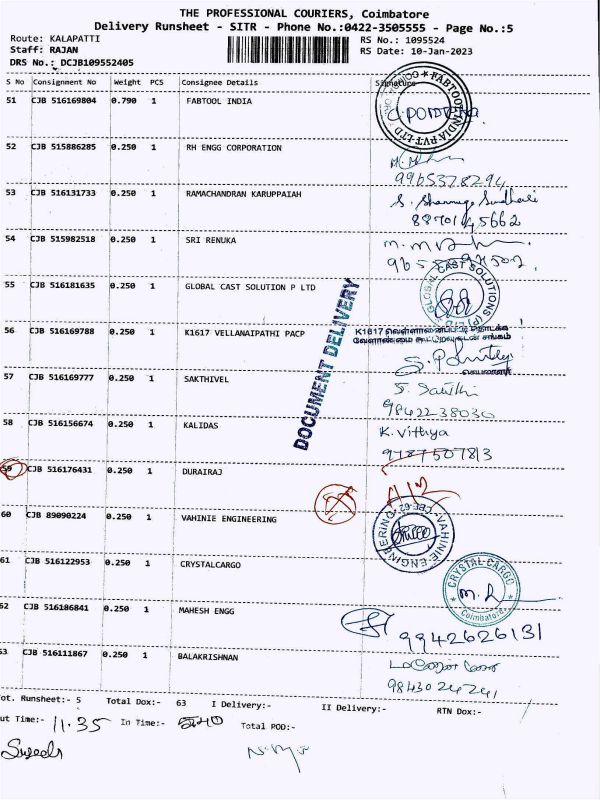 THE PROFESSIONAL COURIERS, Coimbatore
Delivery Runsheet - SITR - Phone No.:0422-3505555 - Page No.:5
Route: KALAPATTI RS No.: 1095524
Staff: RAJAN RS Date: 10-Jan-2023
DRS No.: DCJB109552405
S No Consignment No Weight PCS Consignee Details Signature
51 CJB 516169804 0.790 1 FABTOOL INDIA
FABTOOL INDIA PVT LTD
52 CJB 515886285 0.250 1 RH ENGG CORPORATION
9965378294
53 CJB 516131733 0.250 1 RAMACHANDRAN KARUPPAIAH
S. Shanmuga Sundhari
8870145662
54 CJB 515982518 0.250 1 SRI RENUKA
55 CJB 516181635 0.250 1 GLOBAL CAST SOLUTION P LTD
GLOBAL CAST SOLUTIONS (P) LTD
DOCUMENT DELIVERY
56 CJB 516169788 0.250 1 K1617 VELLANAIPATHI PACP
K1617
57 CJB 516169777 0.250 1 SAKTHIVEL
S. Sakthi
9842238030
58 CJB 516156674 0.250 1 KALIDAS
K. Vithya
9787507813
59 CJB 516176431 0.250 1 DURAIRAJ
60 CJB 89090224 0.250 1 VAHINIE ENGINEERING
VAHINIE ENGINEERING CBE-62
61 CJB 516122953 0.250 1 CRYSTALCARGO
CRYSTAL-CARGO
Coimbatore
62 CJB 516186841 0.250 1 MAHESH ENGG
9942626131
63 CJB 516111867 0.250 1 BALAKRISHNAN
9843024241
ot. Runsheet:- 5 Total Dox:- 63 I Delivery:- II Delivery:- RTN Dox:-
ut Time:- 11.35 In Time:- Total POD:-